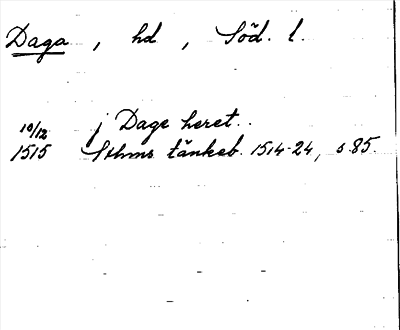 Daga, hd, Söd. l.
10/12 j Dage heret..
1515 Sthms tänkeb. 1514-24, s.85.